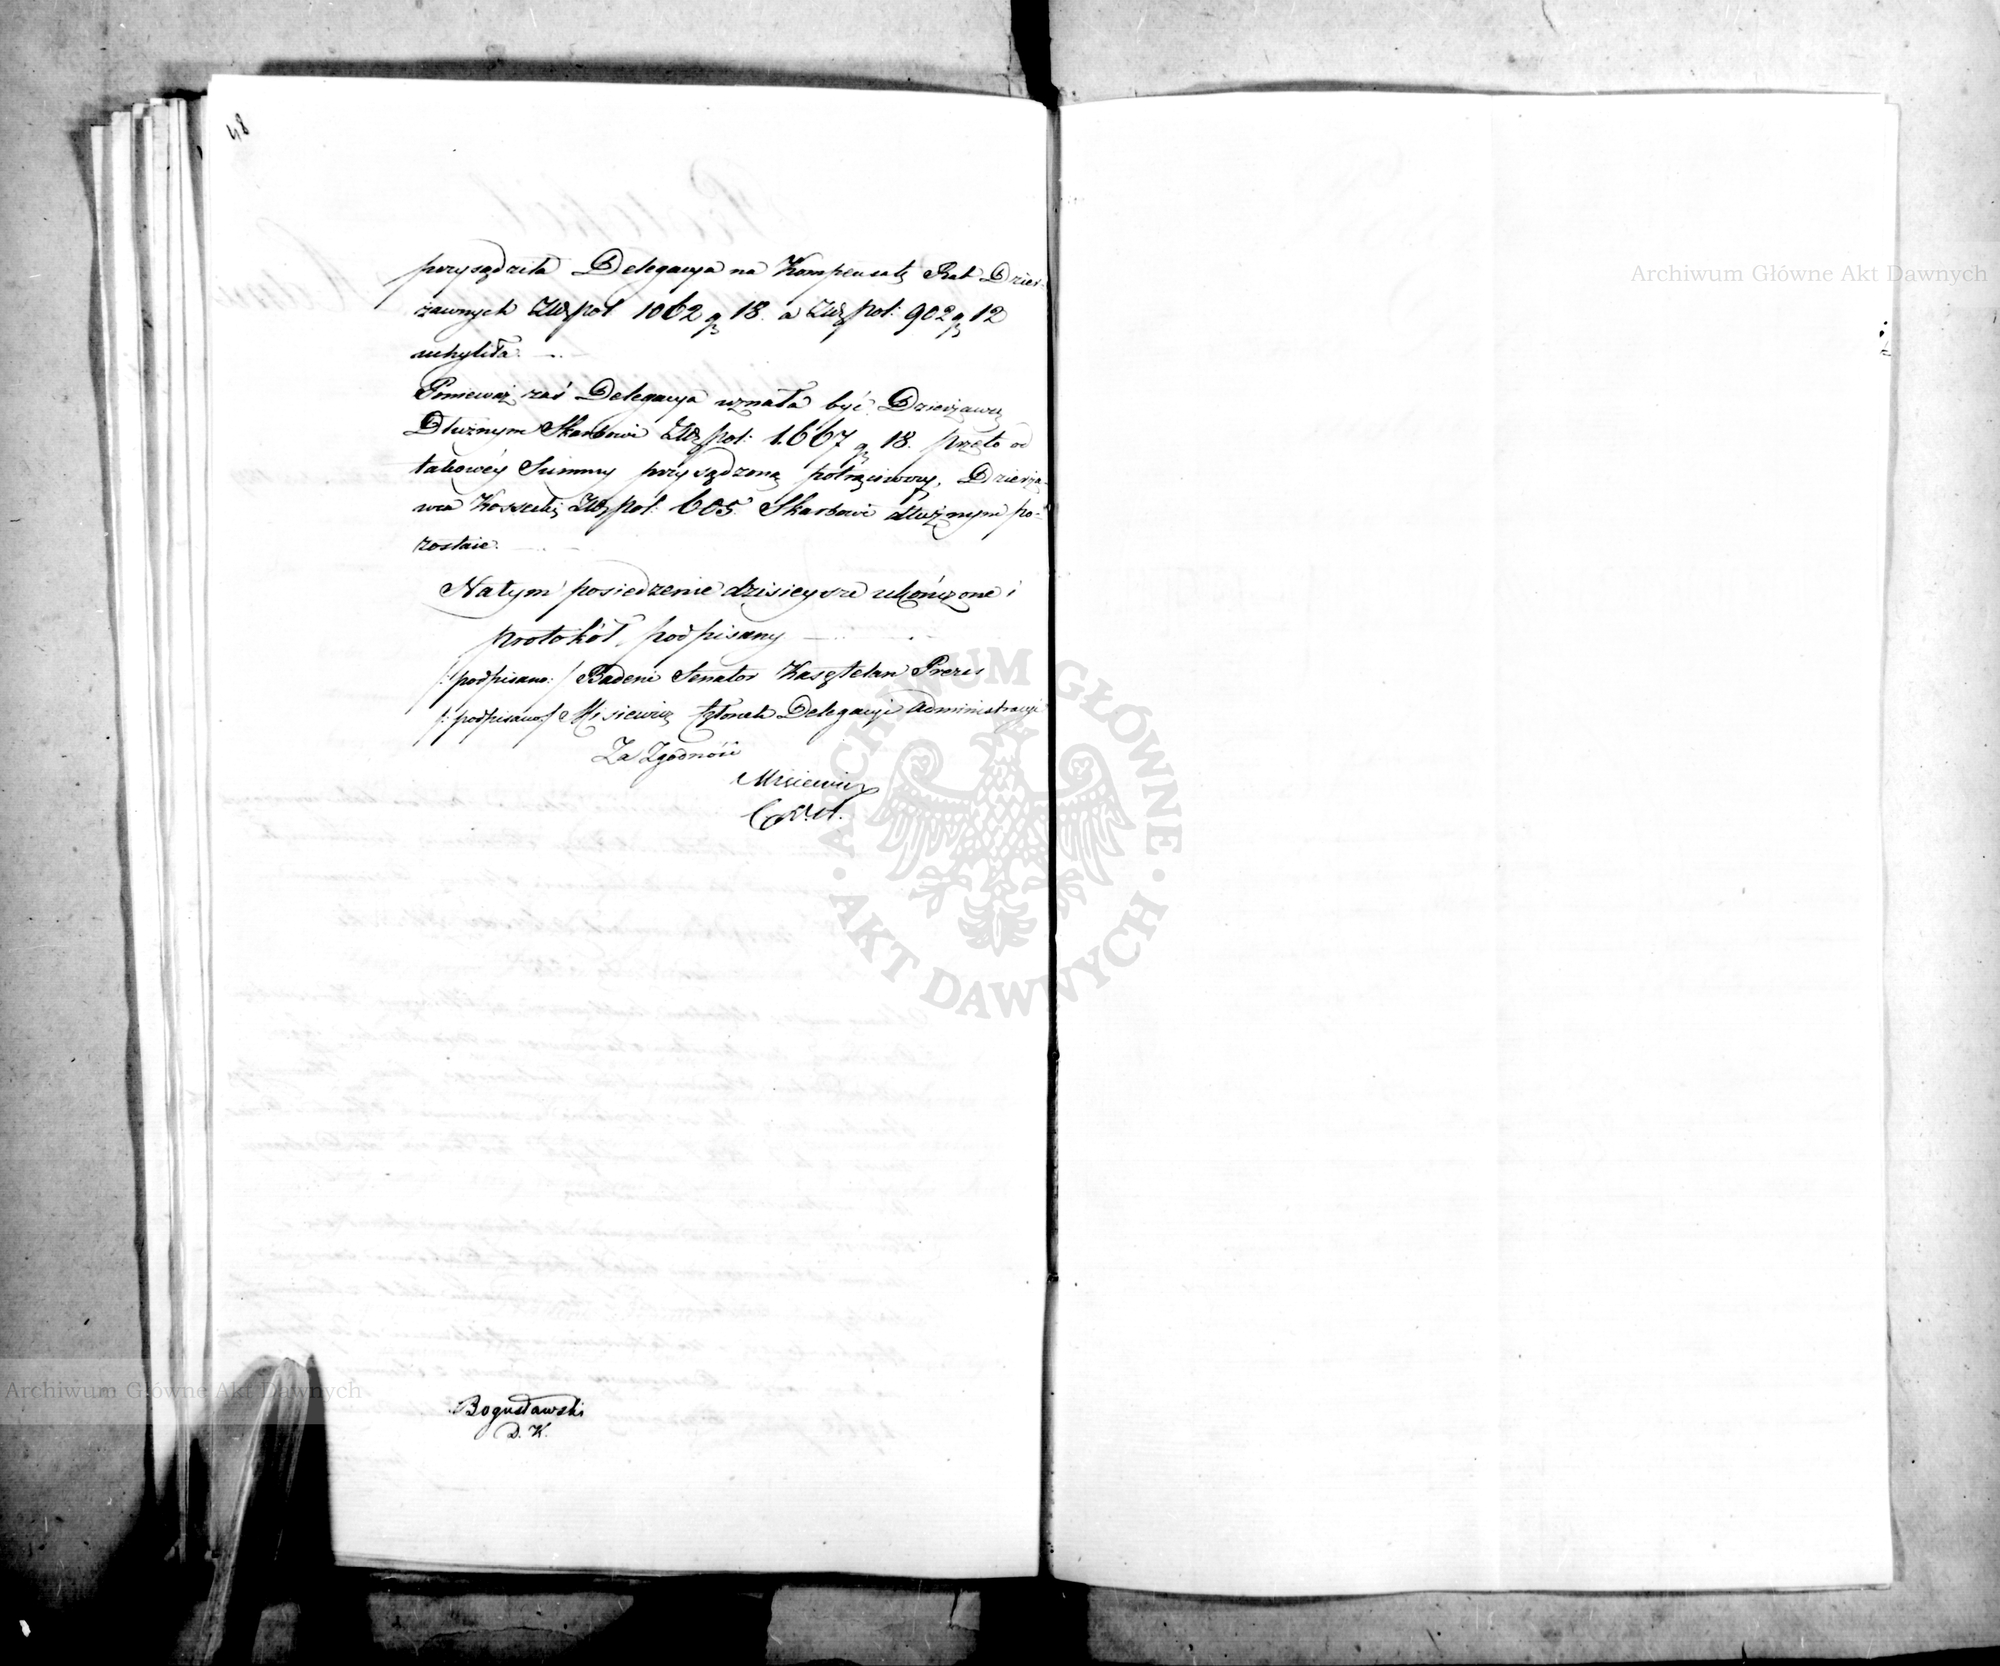 48
przysądziła Delegacya na Kompensatę Rat Dzier-
żawnych Złł pol: 1062 gr 18. a Złł pol: 902 gr 12
uchyliła.
Ponieważ zaś Delegacya uznała być Dzierżawcę
Dłużnym Skarbowi Złł pol: 1.667 gr 18. przeto od
takowéy Summy przysądzoną potrąciwszy, Dzierża-
wca Złł pol: 605. Skarbowi dłużnym po-
zostaie.
Na tym posiedzenie dzisieysze ukończone i
protokół podpisany
/: podpisano: / Badeni Senator Kasztelan Prezes
/: podpisano / Misiewicz Członek Delegacyi Administracyi
Za Zgodność
Misiewicz
Bogusławski
D. K.
Archiwum Główne Akt Dawnych
ARCHIWUM GŁÓWNE AKT DAWNYCH
Archiwum Główne Akt Dawnych